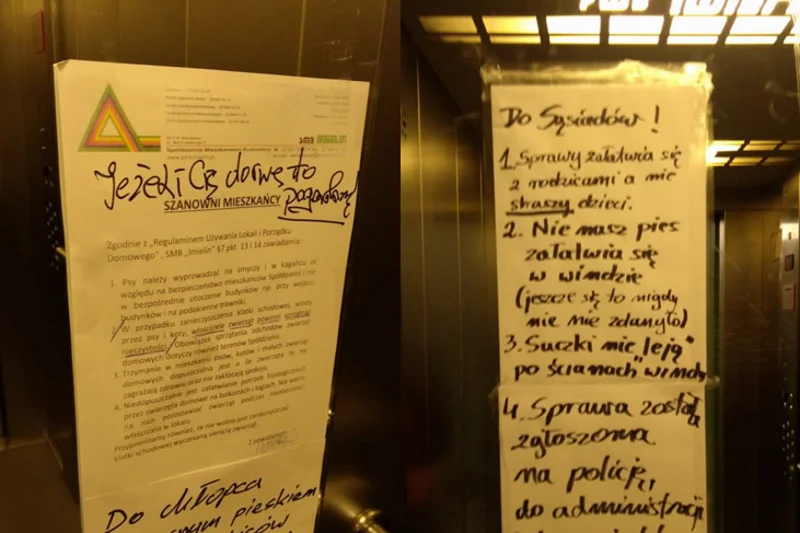 SMB IMIELIN
Spółdzielnia Mieszkaniowo-Budowlana
Jeżeli Cię dorwę to
pogruchoczę!
SZANOWNI MIESZKAŃCY
Zgodnie z „Regulaminem Używania Lokali i Porządku
Domowego", SMB „Imielin" §7 pkt. 13 i 14 zawiadamia:
1. Psy należy wyprowadzać na smyczy i w kagańcu ze
względu na bezpieczeństwo mieszkańców Spółdzielni i nie
w bezpośrednie otoczenie budynków np. przy wejściu
budynków i na podokienne trawniki.
2. W przypadku zanieczyszczenia klatki schodowej, windy
przez psy i koty, właściciele zwierząt powinni sprzątnąć
nieczystości. Obowiązek sprzątania odchodów zwierząt
domowych dotyczy również terenów Spółdzielni.
3. Trzymanie w mieszkaniu psów, kotów i małych zwierząt
domowych dopuszczalna jest o ile zwierzęta te nie
zagrażają zdrowiu oraz nie zakłócają spokoju.
4. Niedopuszczalne jest załatwianie potrzeb fizjologicznych
przez zwierzęta domowe na balkonach i logiach. Nie wolno
na nich pozostawiać zwierząt podczas nieobecności
właściciela w lokalu.
Przypominamy również, że nie wolno zanieczyszczać
klatki schodowej wyczesaną sierścią zwierząt.
Z poważaniem
Do chłopca
pieskiem
Do Sąsiadów!
1. Sprawy załatwia się
z rodzicami a nie
straszy dzieci.
2. Nie nasz pies
załatwia się
w windzie
(jeszcze się to nigdy
nie zdarzyło)
3. Suczki nie „leją"
po ścianach windy
4. Sprawa została
zgłoszona
na policję,
do administracji